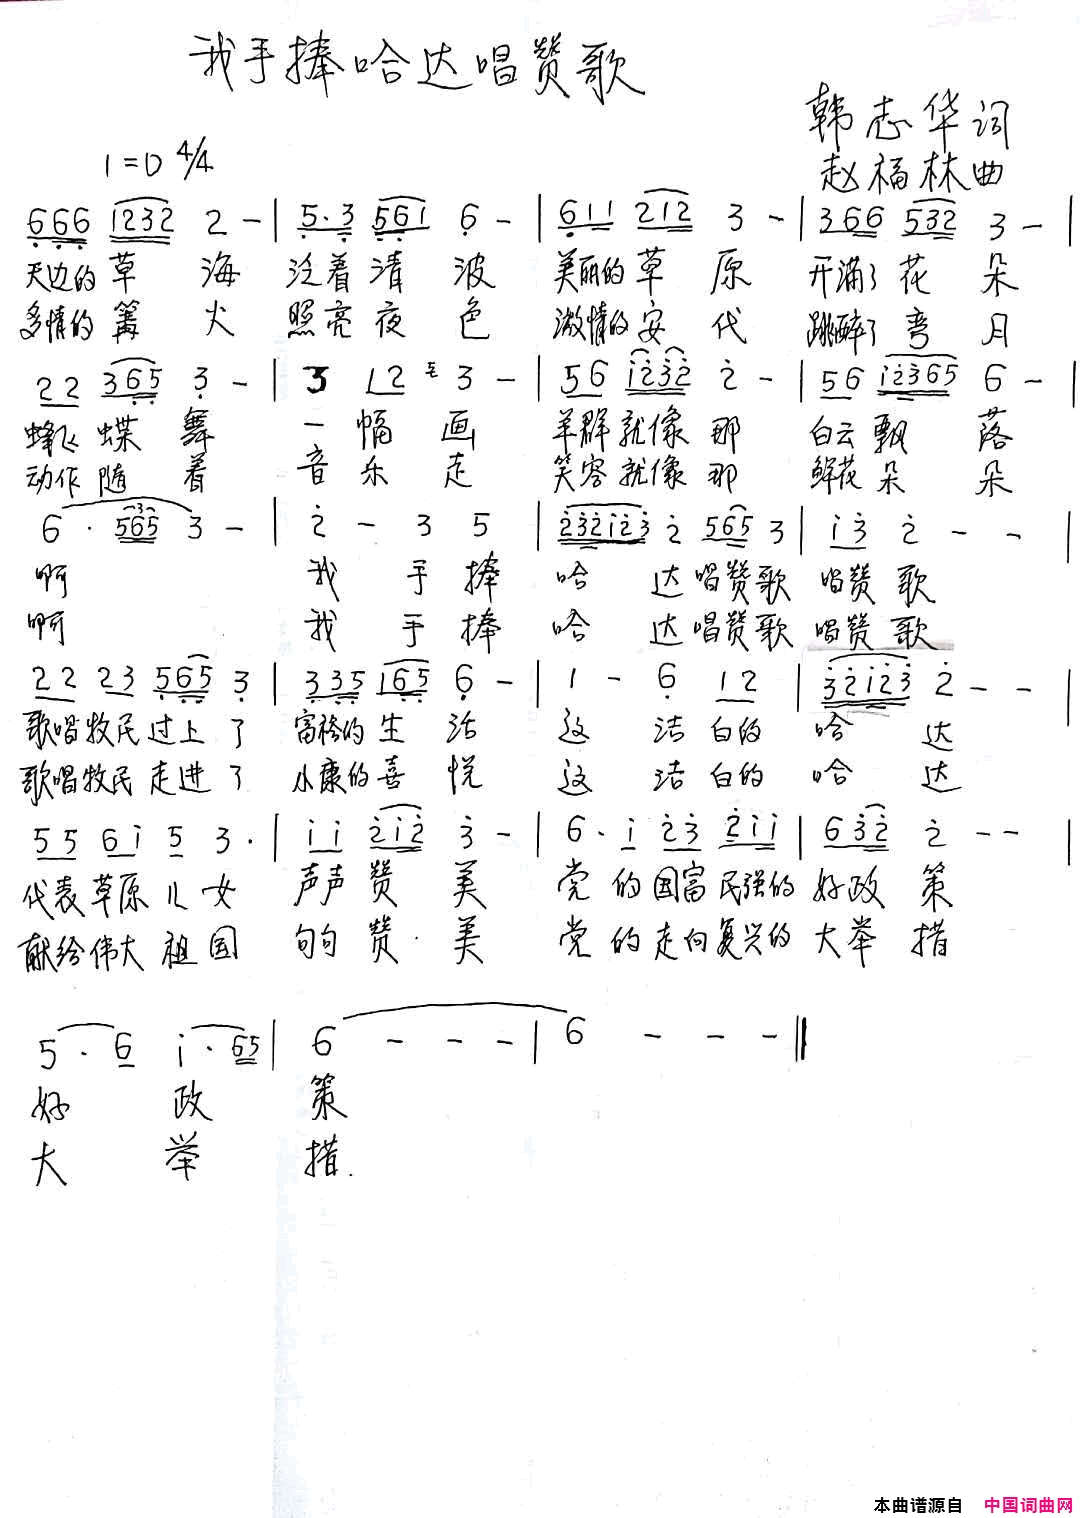 我手捧哈达唱赞歌
韩志华词
1=D 4/4
赵福林曲
666 1232 2 - | 5·3 561 6 - | 611 212 3 - | 366 532 3 - |
天边的草 海 泛着清 波 美丽的草 原 开满了花 朵
多情的篝 火 照亮夜 色 激情的安 代 跳醉了弯 月
22 365 3 - | 3 12 3 - | 56 i232 2 - | 56 i2365 6 - |
蜂飞蝶 舞 一 幅 画 羊群就像 那 白云飘 落
动作随 着 音 乐 走 笑容就像 那 鲜花朵 朵
6 · 565 3 - | 2 - 3 5 | 232i23 2 565 3 | i3 2 - - |
啊 我 手 捧 哈 达唱赞歌 唱赞 歌
啊 我 手 捧 哈 达唱赞歌 唱赞 歌
22 23 565 3 | 335 165 6 - | 1 - 6 12 | 32i23 2 - - |
歌唱牧民过上了 富裕的生 活 这 洁白的 哈 达
歌唱牧民走进了 小康的喜 悦 这 洁白的 哈 达
55 6i 5 3· | ii 2i2 3 - | 6·i 23 2ii | 632 2 - - |
代表草原儿女 声声赞 美 党的国富民强的 好政 策
献给伟大祖国 句句赞 美 党的走向复兴的 大举 措
5·6 i·65 | 6 - - - | 6 - - - ‖
好 政 策
大 举 措
本曲谱源自 中国词曲网